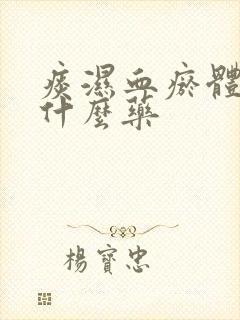 痰濕血瘀體
什麼藥
楊寶忠